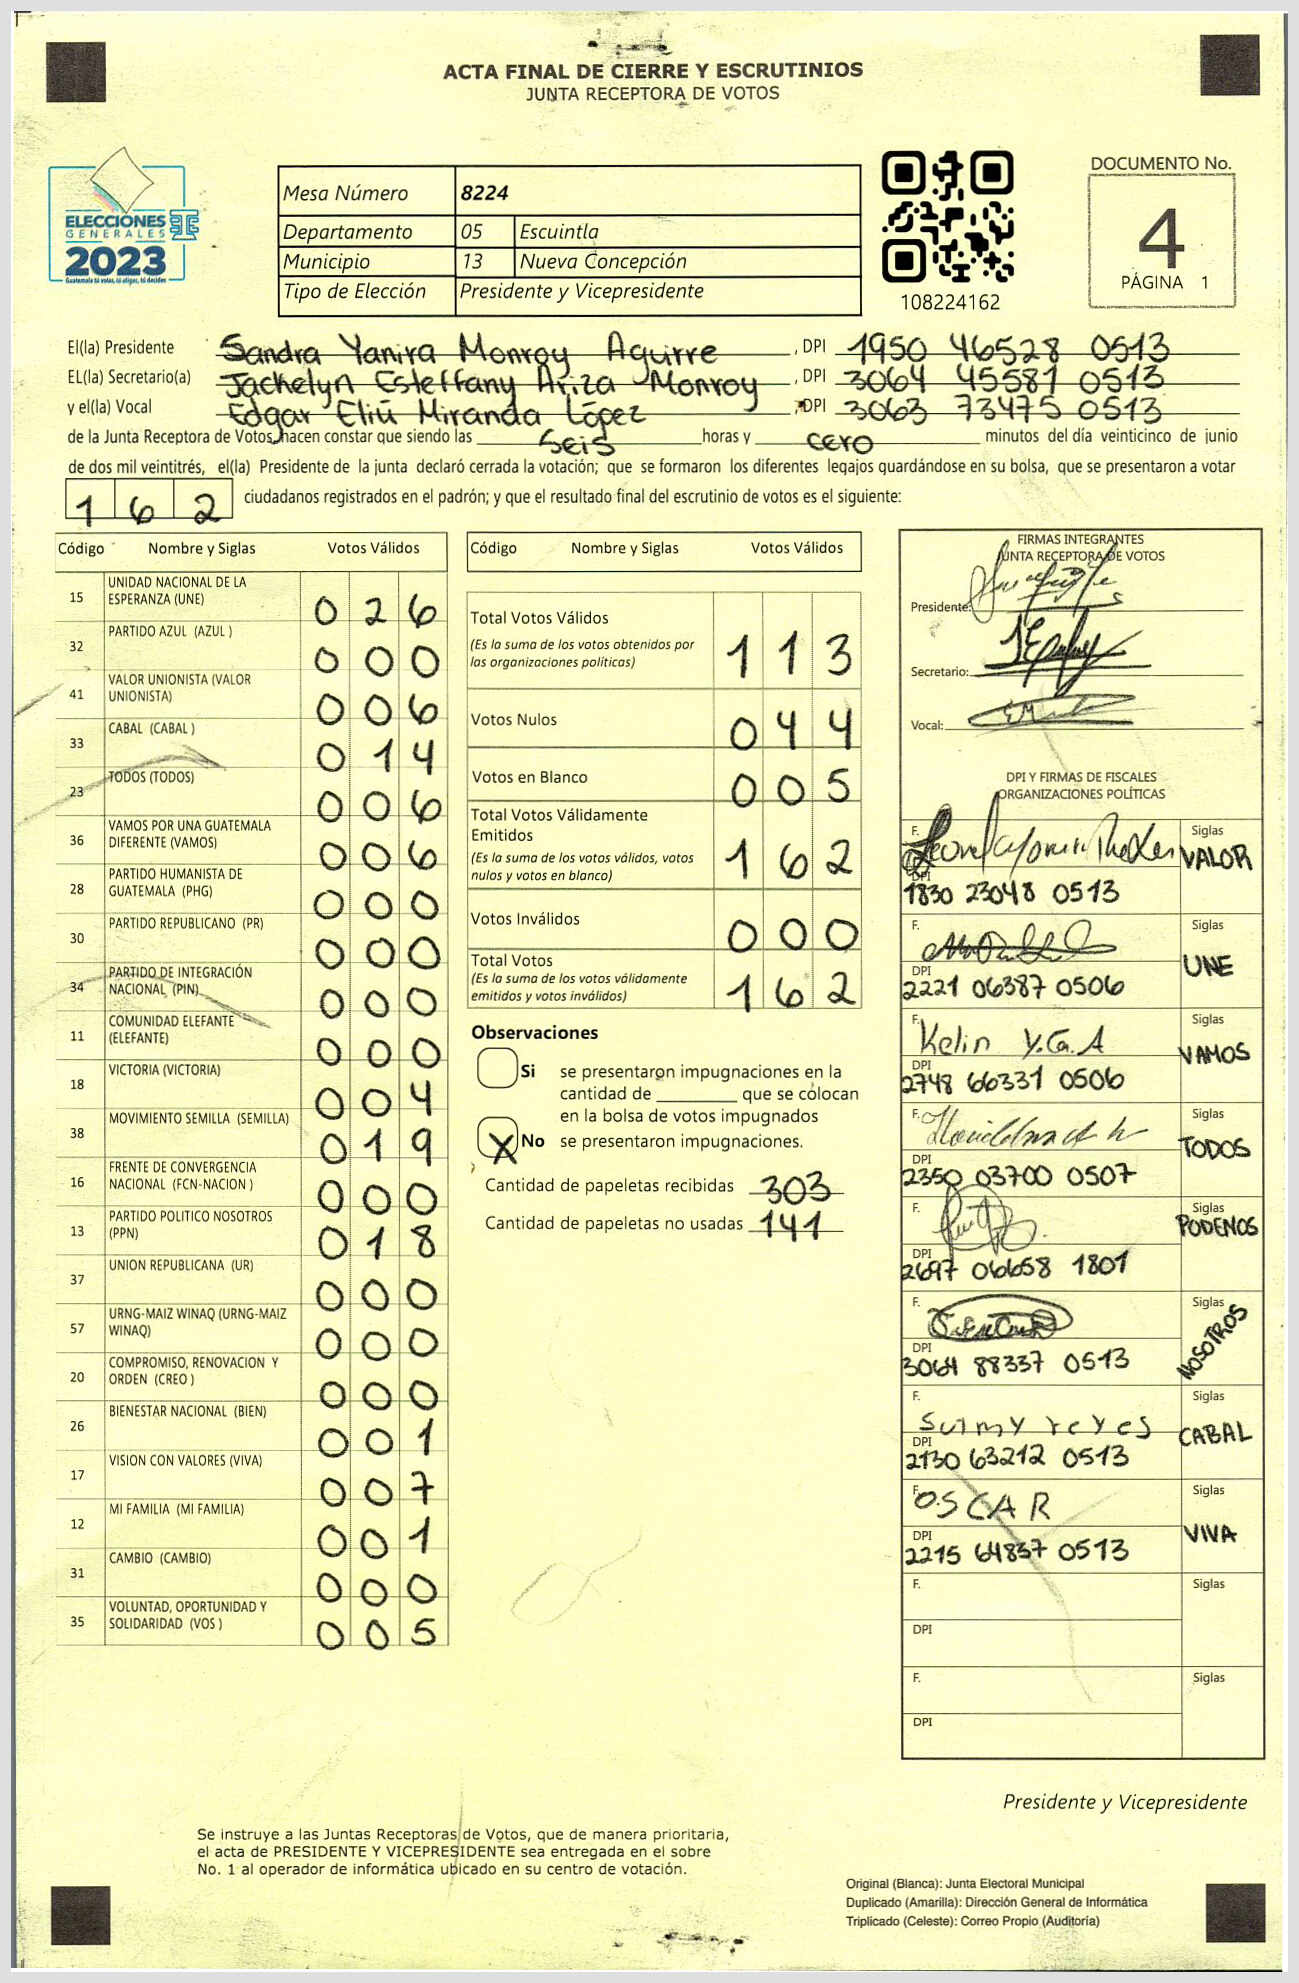 ACTA FINAL DE CIERRE Y ESCRUTINIOS
JUNTA RECEPTORA DE VOTOS
ELECCIONES
GENERALES
2023
Guatemala tú votas, tú eliges, tú decides
Mesa Número 8224
Departamento 05 Escuintla
Municipio 13 Nueva Concepción
Tipo de Elección Presidente y Vicepresidente
108224162
DOCUMENTO No.
4
PÁGINA 1
El(la) Presidente Sandra Yanira Monroy Aguirre, DPI 1950 46528 0513
EL(la) Secretario(a) Jackelyn Esteffany Ariza Monroy, DPI 3064 45581 0513
y el(la) Vocal Edgar Eliú Miranda López, DPI 3063 73475 0513
de la Junta Receptora de Votos, hacen constar que siendo las seis horas y cero minutos del día veinticinco de junio
de dos mil veintitrés, el(la) Presidente de la junta declaró cerrada la votación; que se formaron los diferentes legajos guardándose en su bolsa, que se presentaron a votar
162 ciudadanos registrados en el padrón; y que el resultado final del escrutinio de votos es el siguiente:
Código Nombre y Siglas Votos Válidos
15 UNIDAD NACIONAL DE LA ESPERANZA (UNE) 026
32 PARTIDO AZUL (AZUL ) 000
41 VALOR UNIONISTA (VALOR UNIONISTA) 006
33 CABAL (CABAL ) 014
23 TODOS (TODOS) 006
36 VAMOS POR UNA GUATEMALA DIFERENTE (VAMOS) 006
28 PARTIDO HUMANISTA DE GUATEMALA (PHG) 000
30 PARTIDO REPUBLICANO (PR) 000
34 PARTIDO DE INTEGRACIÓN NACIONAL (PIN) 000
11 COMUNIDAD ELEFANTE (ELEFANTE) 000
18 VICTORIA (VICTORIA) 004
38 MOVIMIENTO SEMILLA (SEMILLA) 019
16 FRENTE DE CONVERGENCIA NACIONAL (FCN-NACION ) 000
13 PARTIDO POLITICO NOSOTROS (PPN) 018
37 UNION REPUBLICANA (UR) 000
57 URNG-MAIZ WINAQ (URNG-MAIZ WINAQ) 000
20 COMPROMISO, RENOVACION Y ORDEN (CREO ) 000
26 BIENESTAR NACIONAL (BIEN) 001
17 VISION CON VALORES (VIVA) 007
12 MI FAMILIA (MI FAMILIA) 001
31 CAMBIO (CAMBIO) 000
35 VOLUNTAD, OPORTUNIDAD Y SOLIDARIDAD (VOS ) 005
Código Nombre y Siglas Votos Válidos
Total Votos Válidos 113
(Es la suma de los votos obtenidos por
las organizaciones politicas)
Votos Nulos 044
Votos en Blanco 005
Total Votos Válidamente
Emitidos 162
(Es la suma de los votos válidos, votos
nulos y votos en blanco)
Votos Inválidos 000
Total Votos 162
(Es la suma de los votos válidamente
emitidos y votos inválidos)
Observaciones
Si se presentaron impugnaciones en la
cantidad de ________ que se colocan
en la bolsa de votos impugnados
X No se presentaron impugnaciones.
Cantidad de papeletas recibidas 303
Cantidad de papeletas no usadas 141
FIRMAS INTEGRANTES
JUNTA RECEPTORA DE VOTOS
Presidente:
Secretario:
Vocal:
DPI Y FIRMAS DE FISCALES
ORGANIZACIONES POLÍTICAS
F. Siglas VALOR
DPI 1830 23048 0513
F. Siglas UNE
DPI 2221 06387 0506
F. Kelin Y.G.A Siglas VAMOS
DPI 2748 66331 0506
F. Siglas TODOS
DPI 2350 03700 0507
F. Siglas PODEMOS
DPI 2697 06658 1801
F. Siglas NOSOTROS
DPI 3064 88337 0513
F. Sulmy reyes Siglas CABAL
DPI 2130 63212 0513
F. OSCAR Siglas VIVA
DPI 2215 64837 0513
F. Siglas
DPI
F. Siglas
DPI
Presidente y Vicepresidente
Se instruye a las Juntas Receptoras de Votos, que de manera prioritaria,
el acta de PRESIDENTE Y VICEPRESIDENTE sea entregada en el sobre
No. 1 al operador de informática ubicado en su centro de votación.
Original (Blanca): Junta Electoral Municipal
Duplicado (Amarilla): Dirección General de Informática
Triplicado (Celeste): Correo Propio (Auditoría)